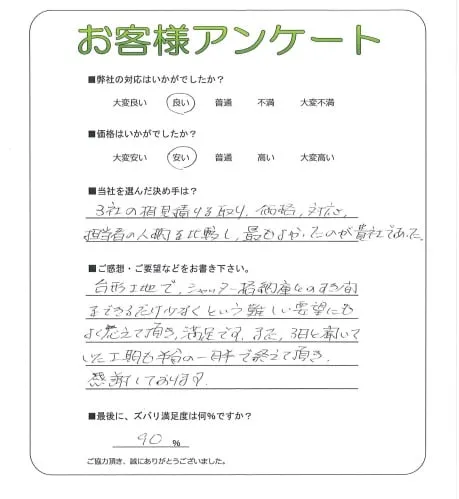 お客様アンケート
■弊社の対応はいかがでしたか?
大変良い 良い 普通 不満 大変不満
■価格はいかがでしたか?
大変安い 安い 普通 高い 大変高い
■当社を選んだ決め手は?
3社の相見積りを取り、価格、対応、
担当者の人柄を比較し、最もよかったのが貴社であった。
■ご感想・ご要望などをお書き下さい。
台形土地で、シャッター格納庫とのすき間
をできるだけ少なくという難しい要望にも
よく応えて頂き、満足です。また、3日と聞いて
いた工期も半分の一日半で終えて頂き、
感謝しております。
■最後に、ズバリ満足度は何%ですか?
90 %
ご協力頂き、誠にありがとうございました。